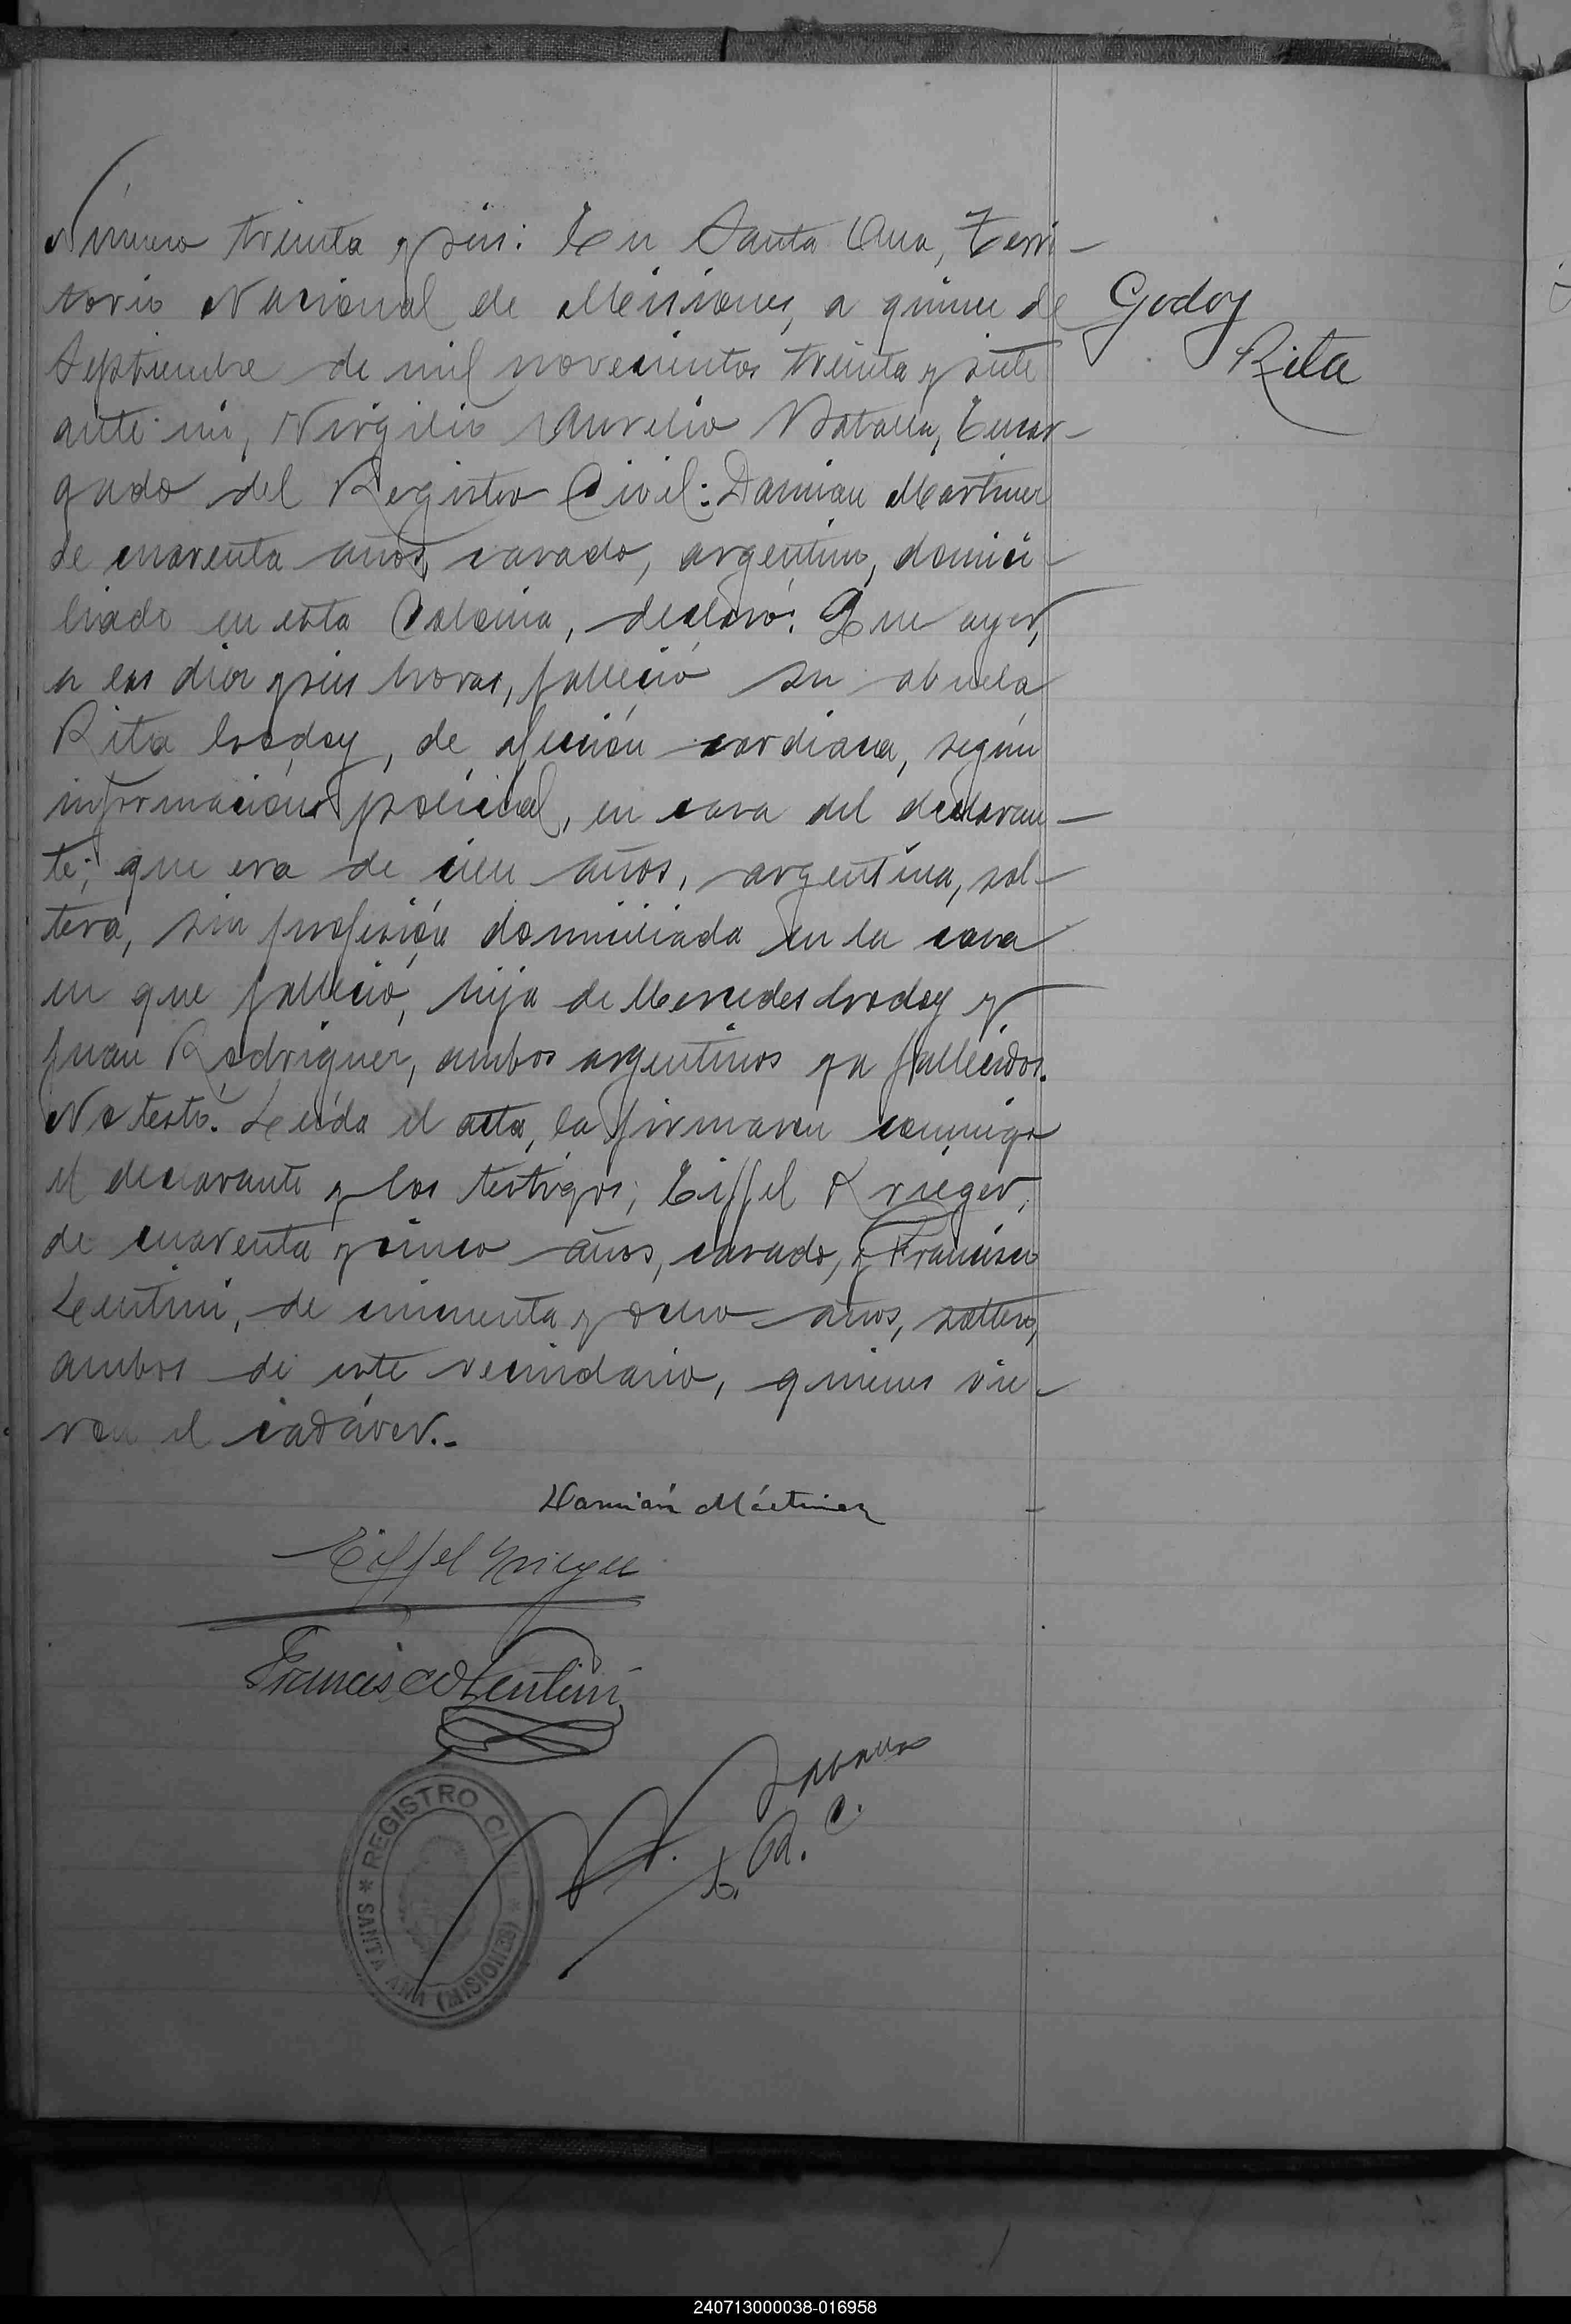 Número treinta y seis: En Santa Ana, Terri-
torio Nacional de Misiones, a quince de
Godoy
Rita
Septiembre de mil novecientos treinta y siete
ante mí, Virgilio Aurelio Encar-
gado del Registro Civil: Damian Martinez
de cuarenta años, casado, argentino, domici-
liado en esta Colonia, declaró: Que ayer,
a las diez y seis horas, falleció su abuela
Rita Godoy, de afección cardiaca, según
información policial, en casa del declaran-
te; que era de cien años, argentina, sol-
tera, sin profesión domiciliada en la casa
en que falleció, hija de Mercedes Godoy y
Juan Rodriguez, ambos argentinos ya fallecidos.
No testó. Leída el acta, la firmaron conmigo
el declarante y los testigos; Eiffel Krieger,
de cuarenta y cinco años, casado, y Francisco
Lentini, de cincuenta y ocho años, soltero,
ambos de este vecindario, quienes vie-
ron el cadáver.-
Damián Mártinez
Eiffel Krieger
Francisco Lentini
E. R. C.
* REGISTRO CIVIL * SANTA ANA (MISIONES)
240713000038-016958